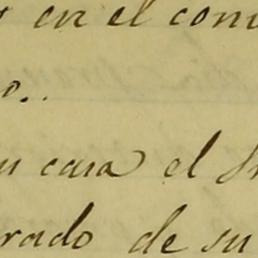 en el com
o..
su casa el Sr
rado de su